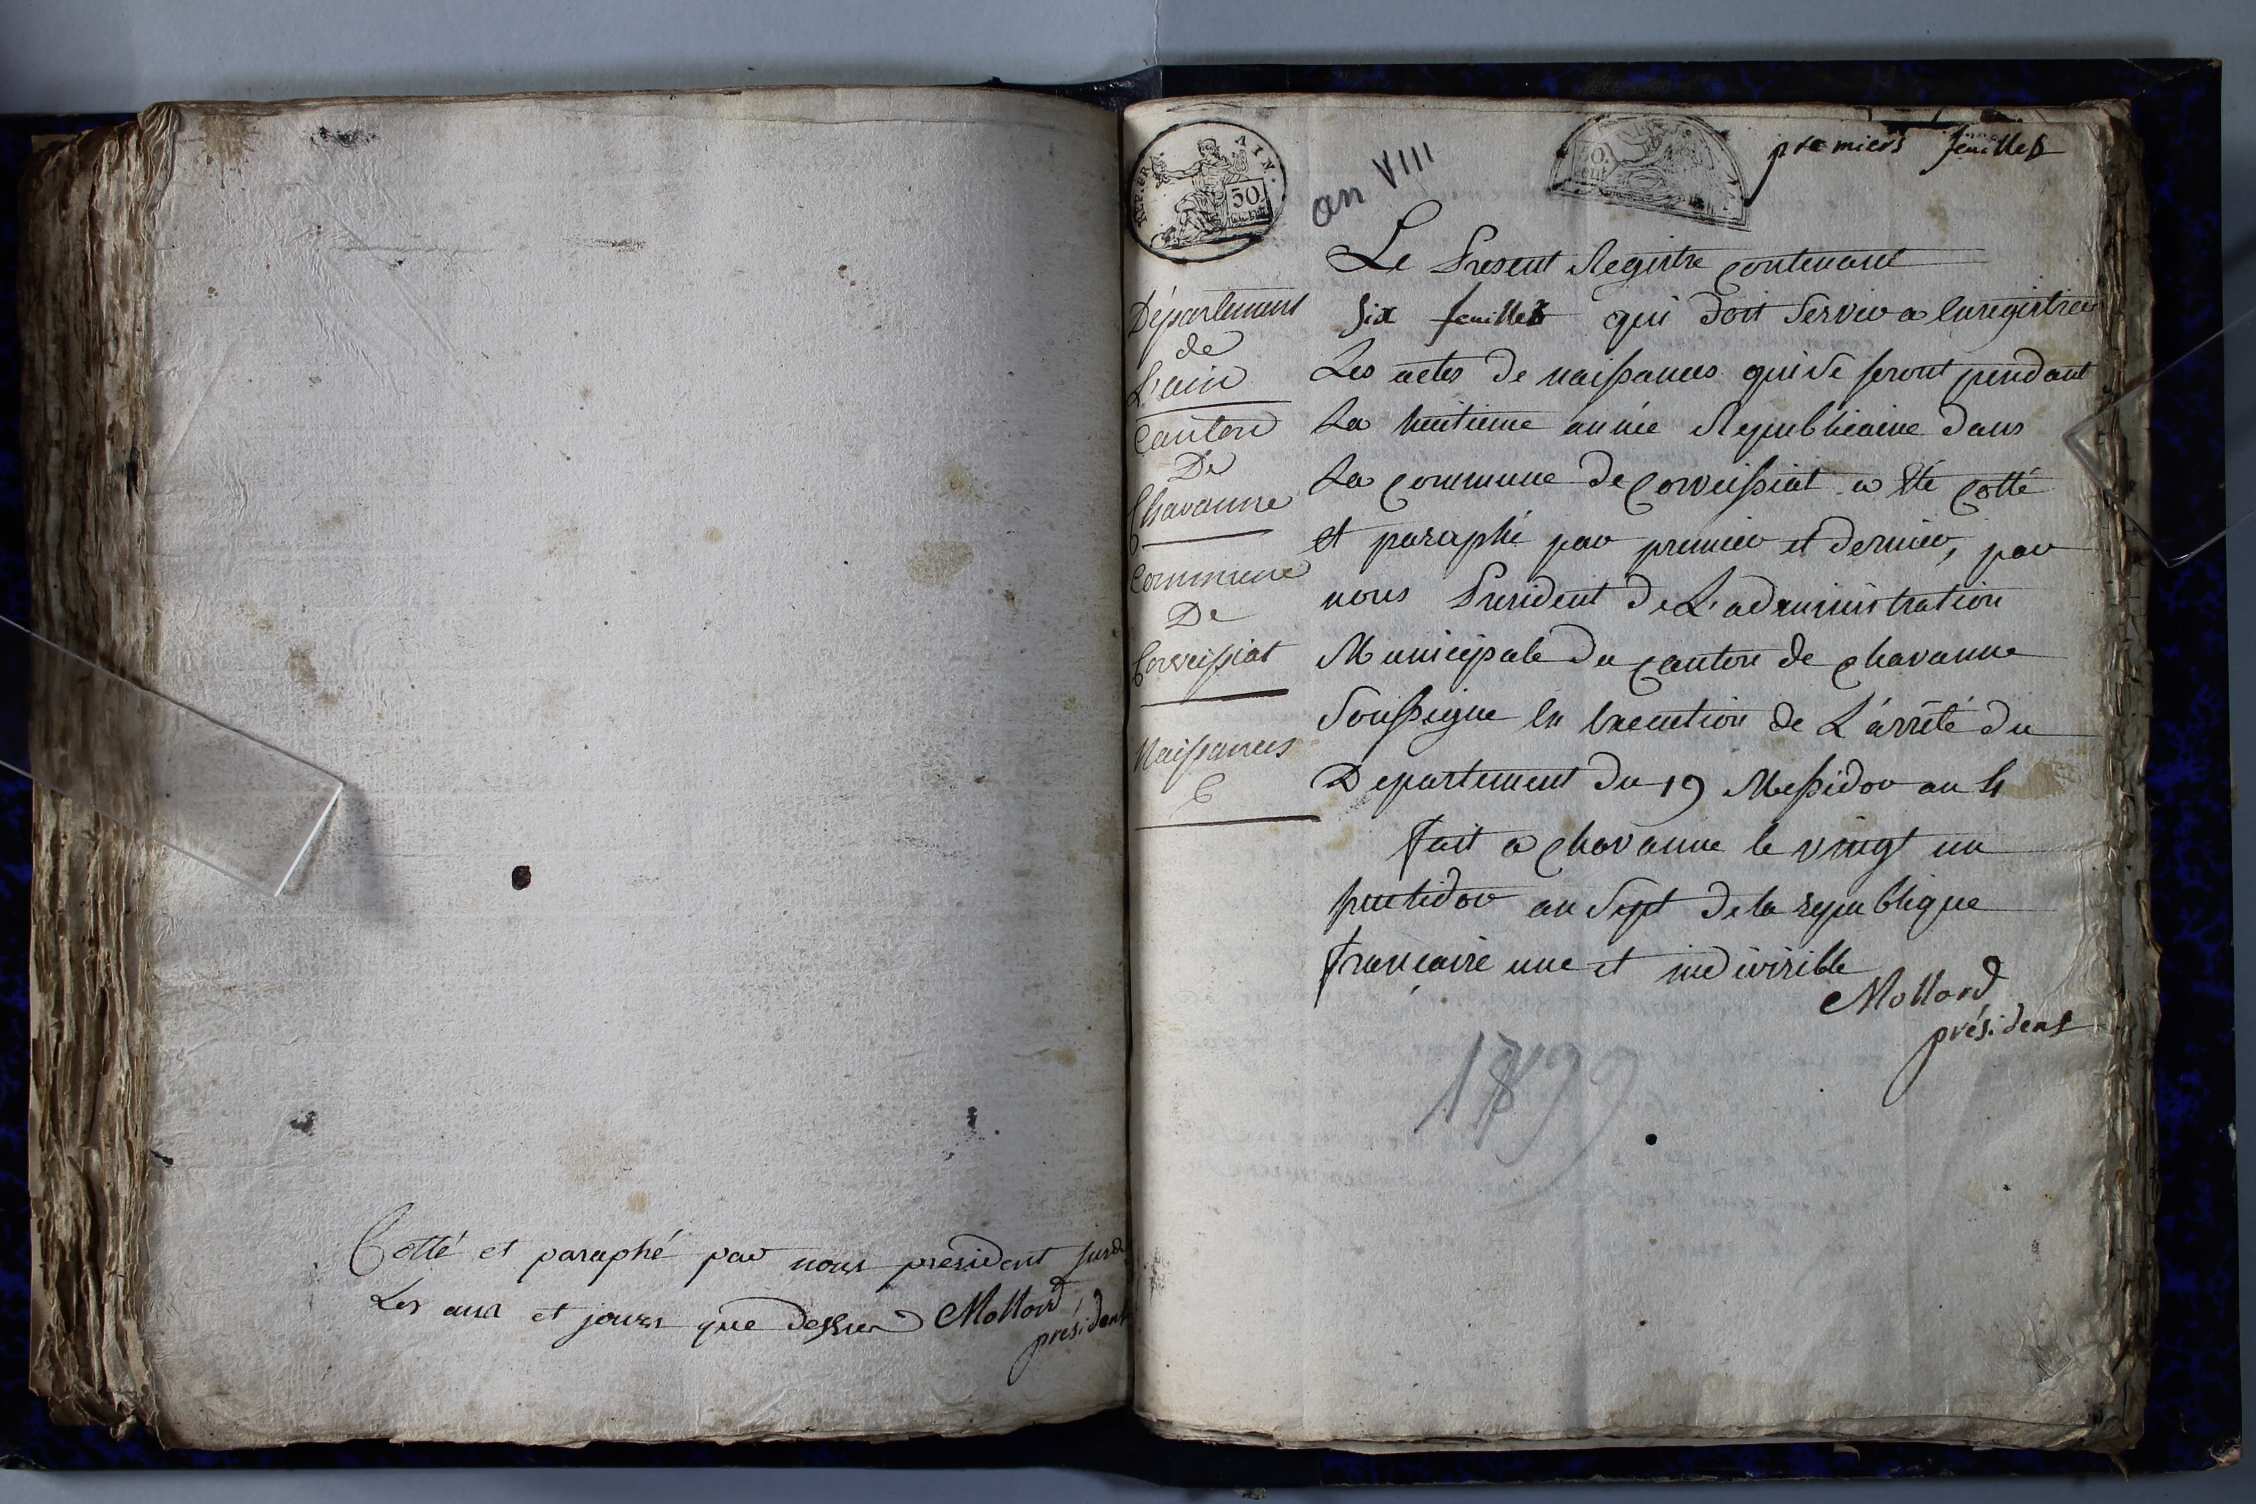 Cotté et paraphé par nous president susd
Les ans et jours que dessus Mollard
président
REP. FR. AIN.
50.
an VIII
premiers feuillets
Département
de
L'ain
Canton
De
Chavanne
Commune
De
Corveissiat
Naissances
Le Present Registre contenant
six feuillets qui doit servir a Enregistrer
Les actes de naissances qui se feront pendant
La huitieme année Republicaine dans
La commune de Corveissiat a été cotté
et paraphé par premier et dernier, par
nous President de L'administration
Municipale du canton de chavanne
Soussigne En Execution de L'arrêté du
Departement du 19 Messidor an 4
fait a chavanne le vingt un
fructidor an Sept de la republique
française une et indivisible
Mollard
président
1799